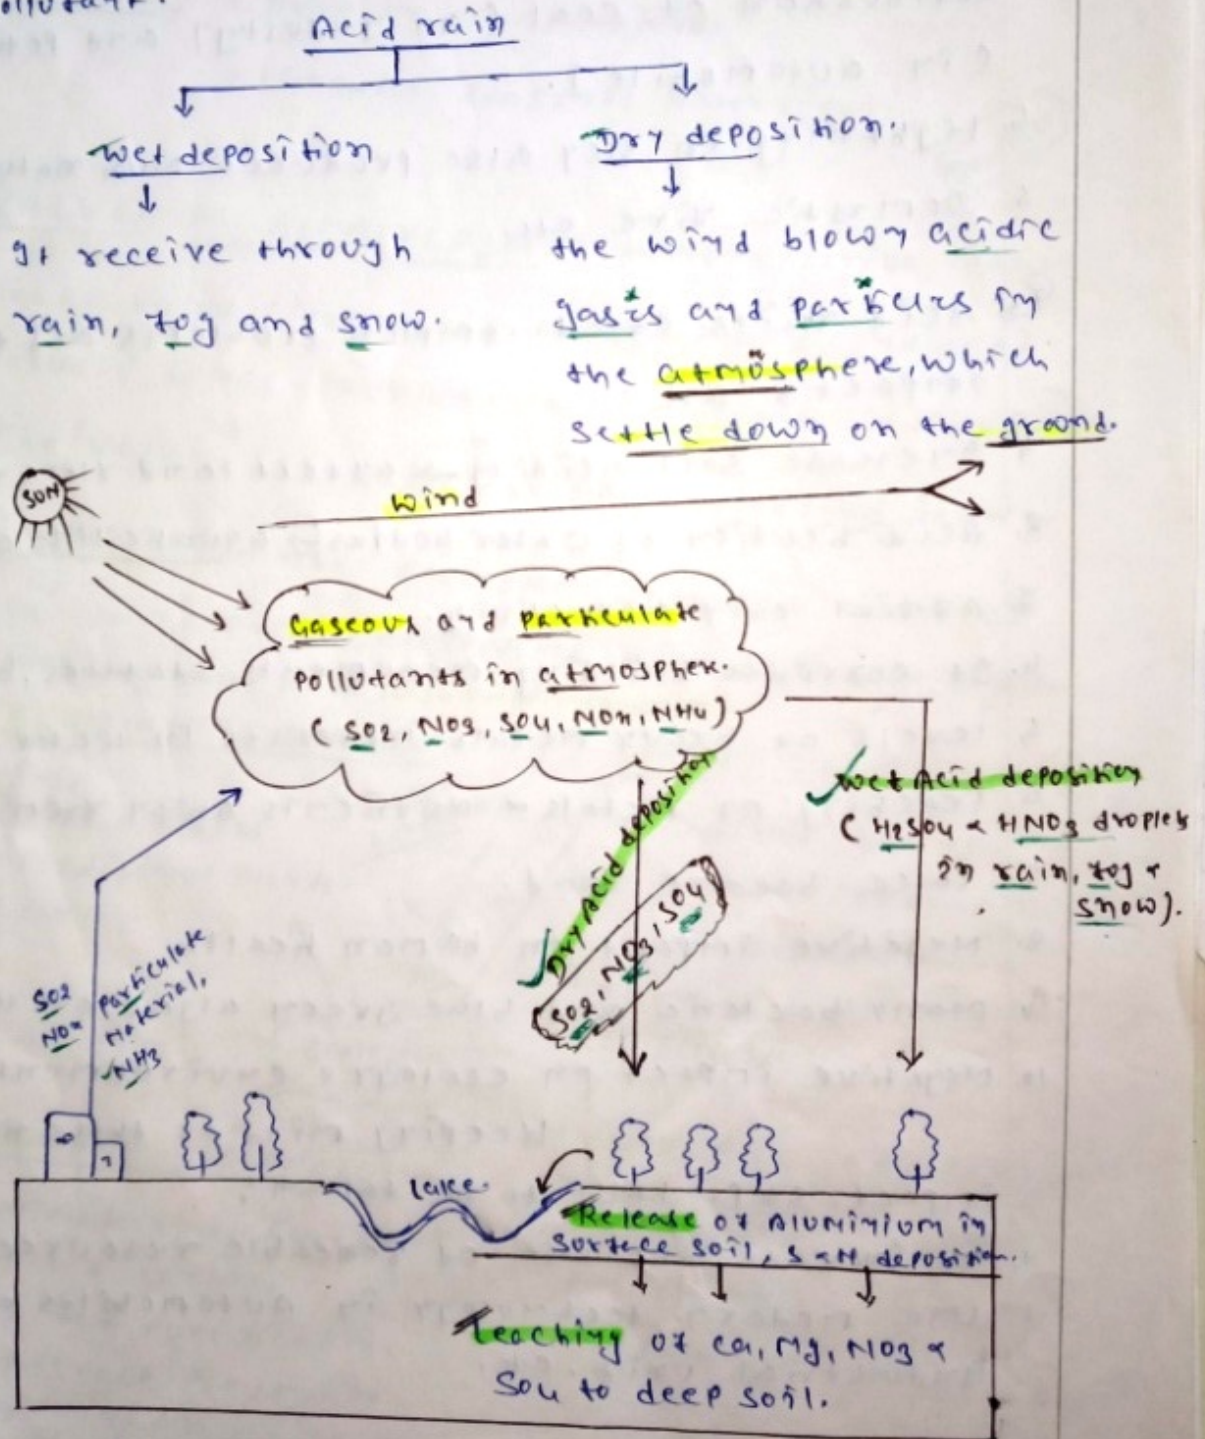 Acid rain
Wet deposition
Dry deposition.
It receive through
rain, fog and snow.
the wind blown acidic
gases and particles in
the atmosphere, which
settle down on the ground.
SUN
Wind
Gaseous and particulate
pollutants in atmospher.
(SO2, NO3, SO4, NOx, NH4)
Wet Acid deposition
(H2SO4 & HNO3 droplets
in rain, fog &
snow).
Dry Acid deposition
(SO2, NO3, SO4)
SO2
NOx
Particulate
Material,
NH3
lake.
Release of Aluminium in
surface soil, S & H deposition.
Leaching of Ca, Mg, NO3 &
SO4 to deep soil.